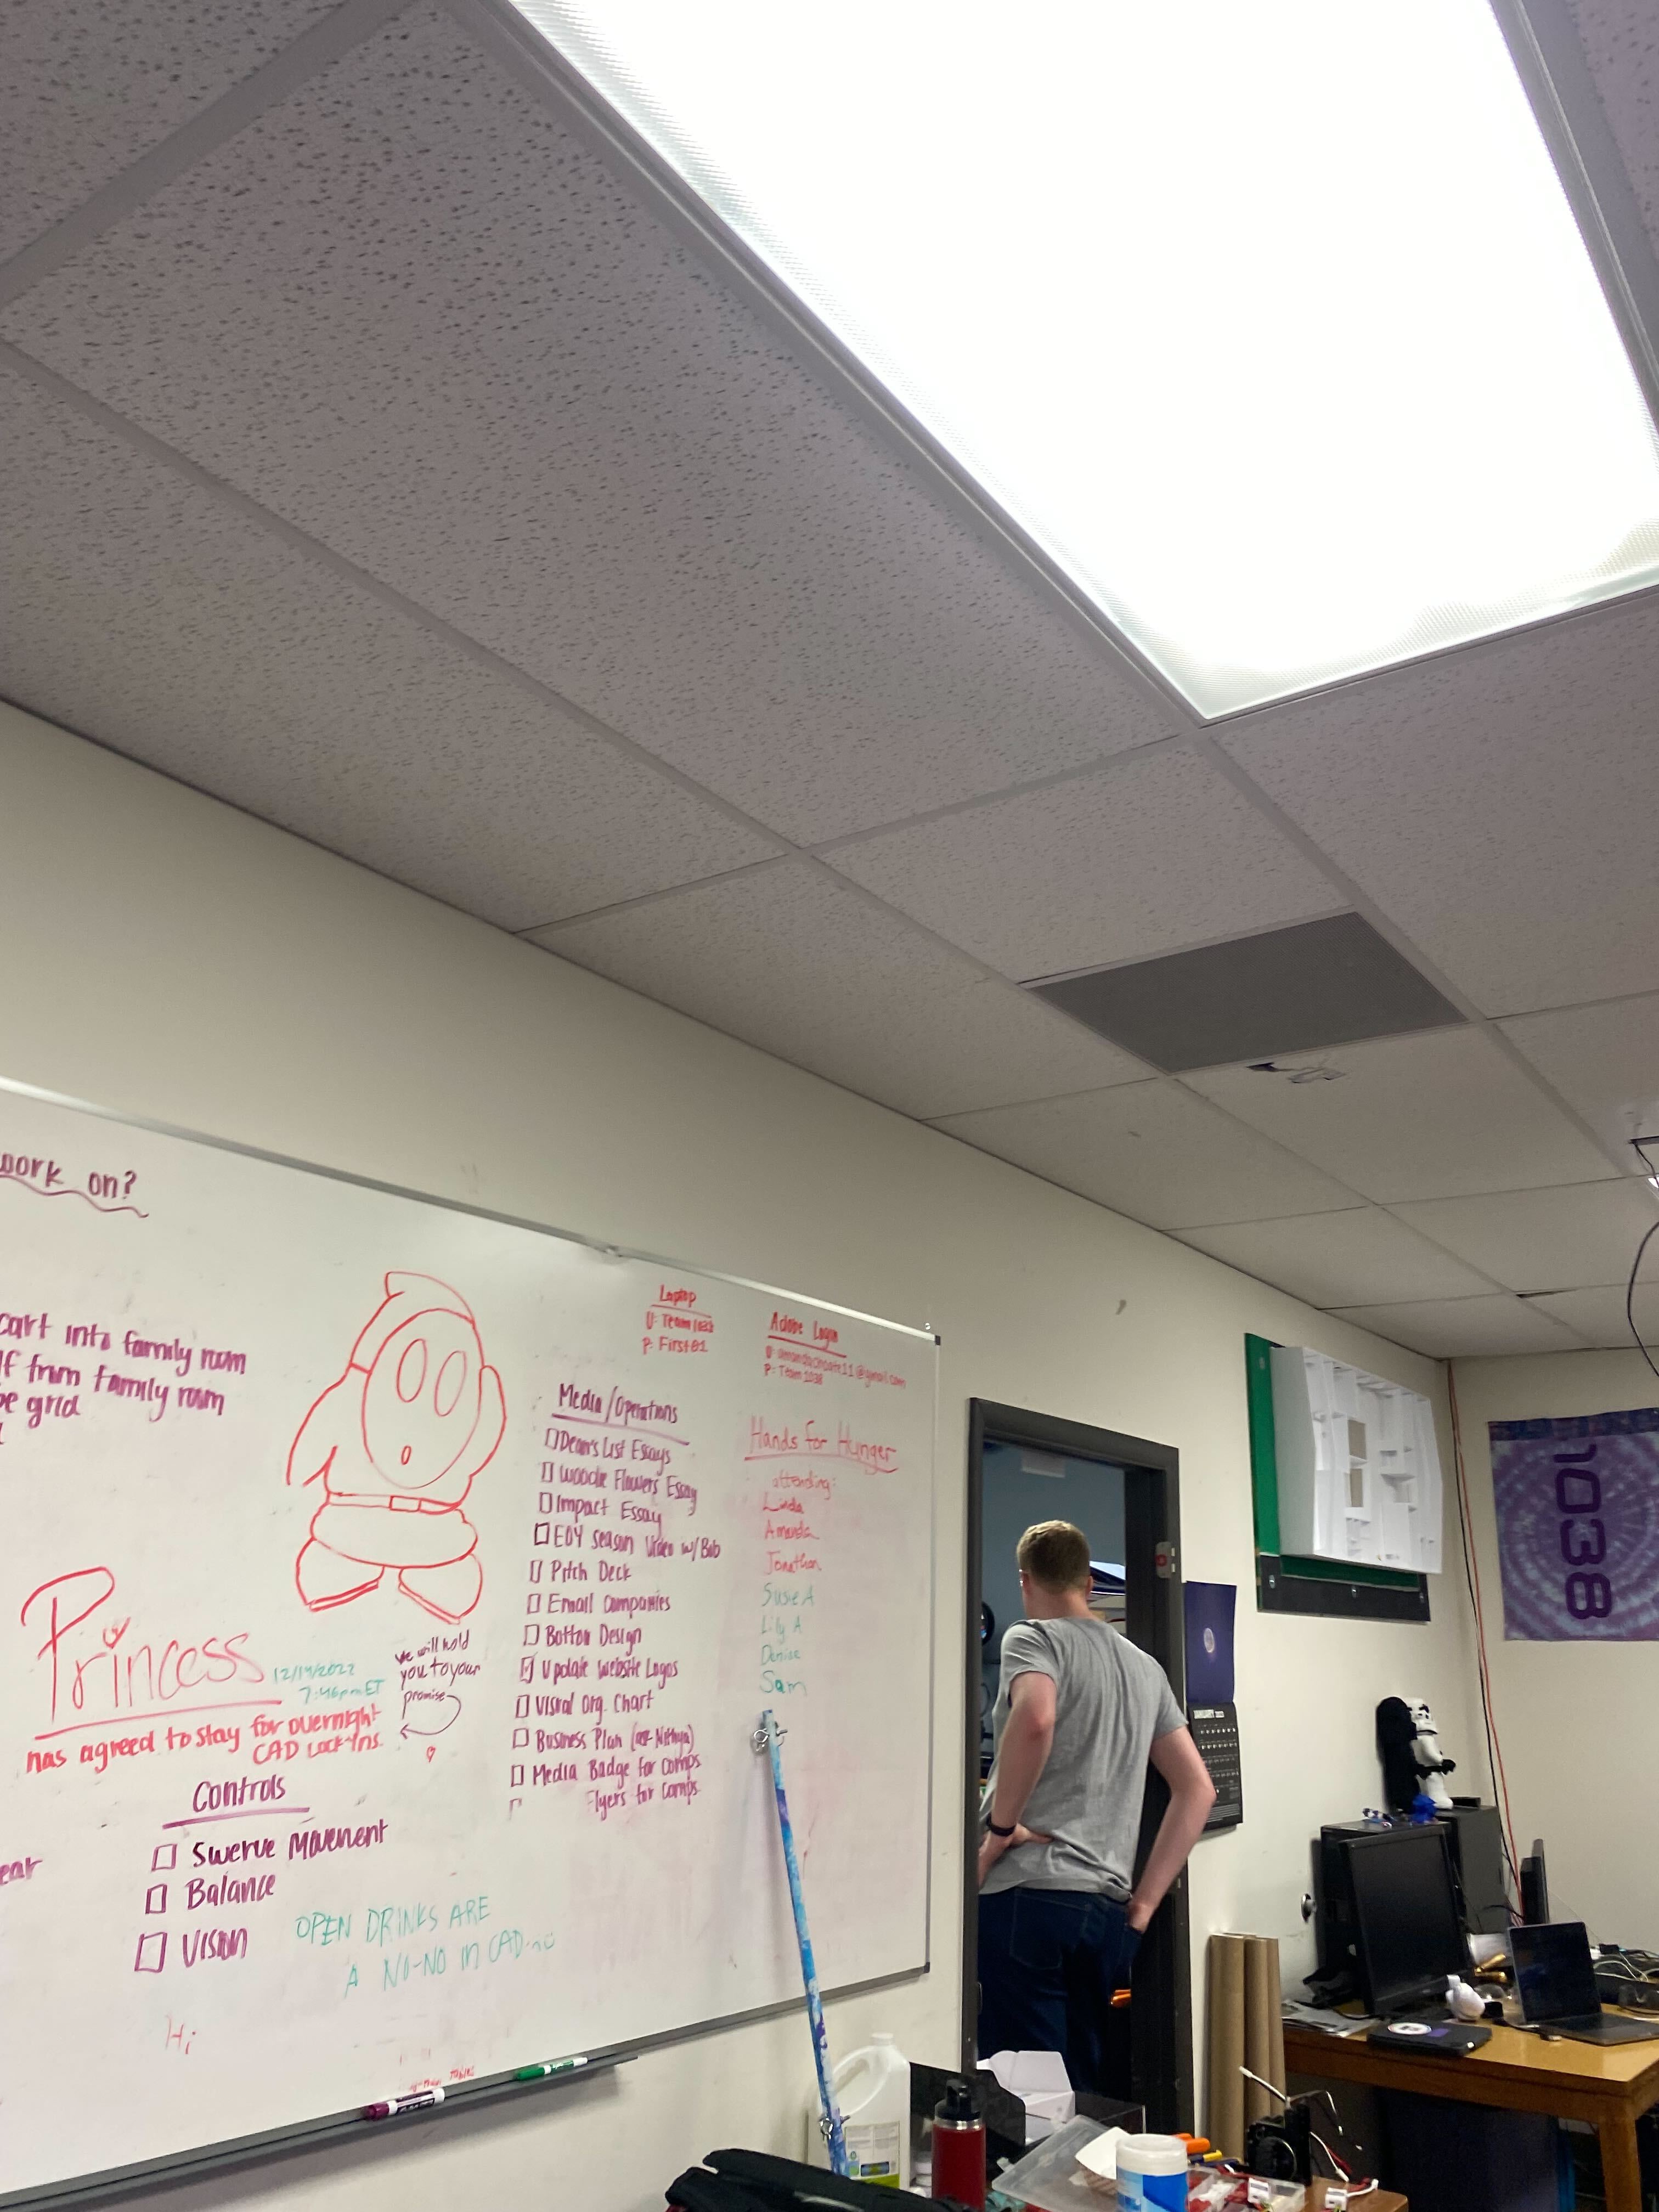 work on?
cart into family room
from family room
grid
Princess
12/14/2022
7:46pm ET
has agreed to stay for overnight
CAD Lock-Ins.
we will hold
you to your
promise
Controls
Swerve Movement
Balance
Vision
OPEN DRINKS ARE
A NO-NO IN CAD-no
Hi
Laptop
U: Team1038
P:
Adobe Login
U:
P:
Media/Operations
Dean's List Essays
Woodie Flowers Essay
Impact Essay
EOY season Video w/Bob
Pitch Deck
Email Companies
Button Design
Update Website Logos
Visual Org. Chart
Business Plan
Media Badge for Comps
Flyers for comps
Hands for Hunger
attending:
Linda
Amanda
Jonathan
Susie A
Lily A
Denise
Sam
1038
JANUARY